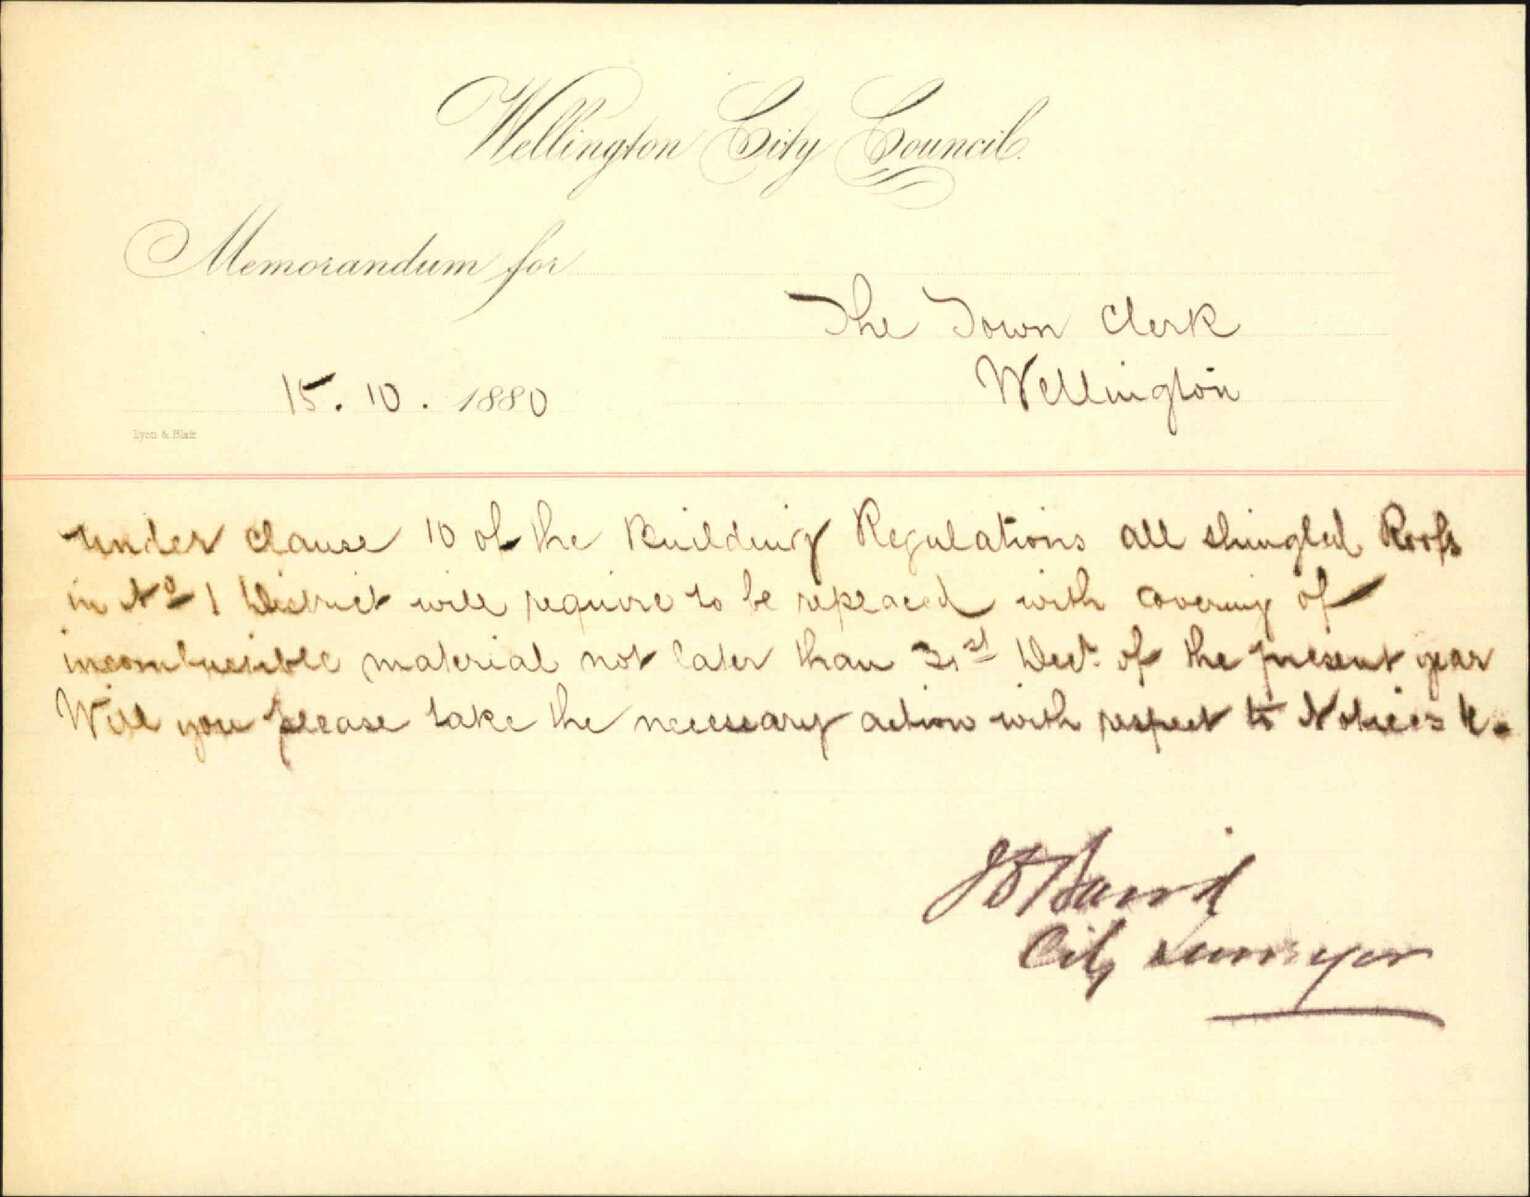 Wellington City Council.
Memorandum for
The Town Clerk
Wellington
15. 10. 1880
Lyon & Blair
Under Clause 10 of the Building Regulations all shingled Roofs
in No 1 District will require to be replaced with covering of
incombustible material not later than 31st Decr. of the present year
Will you please take the necessary action with respect to Notices &c.
J D Baird
City Surveyor